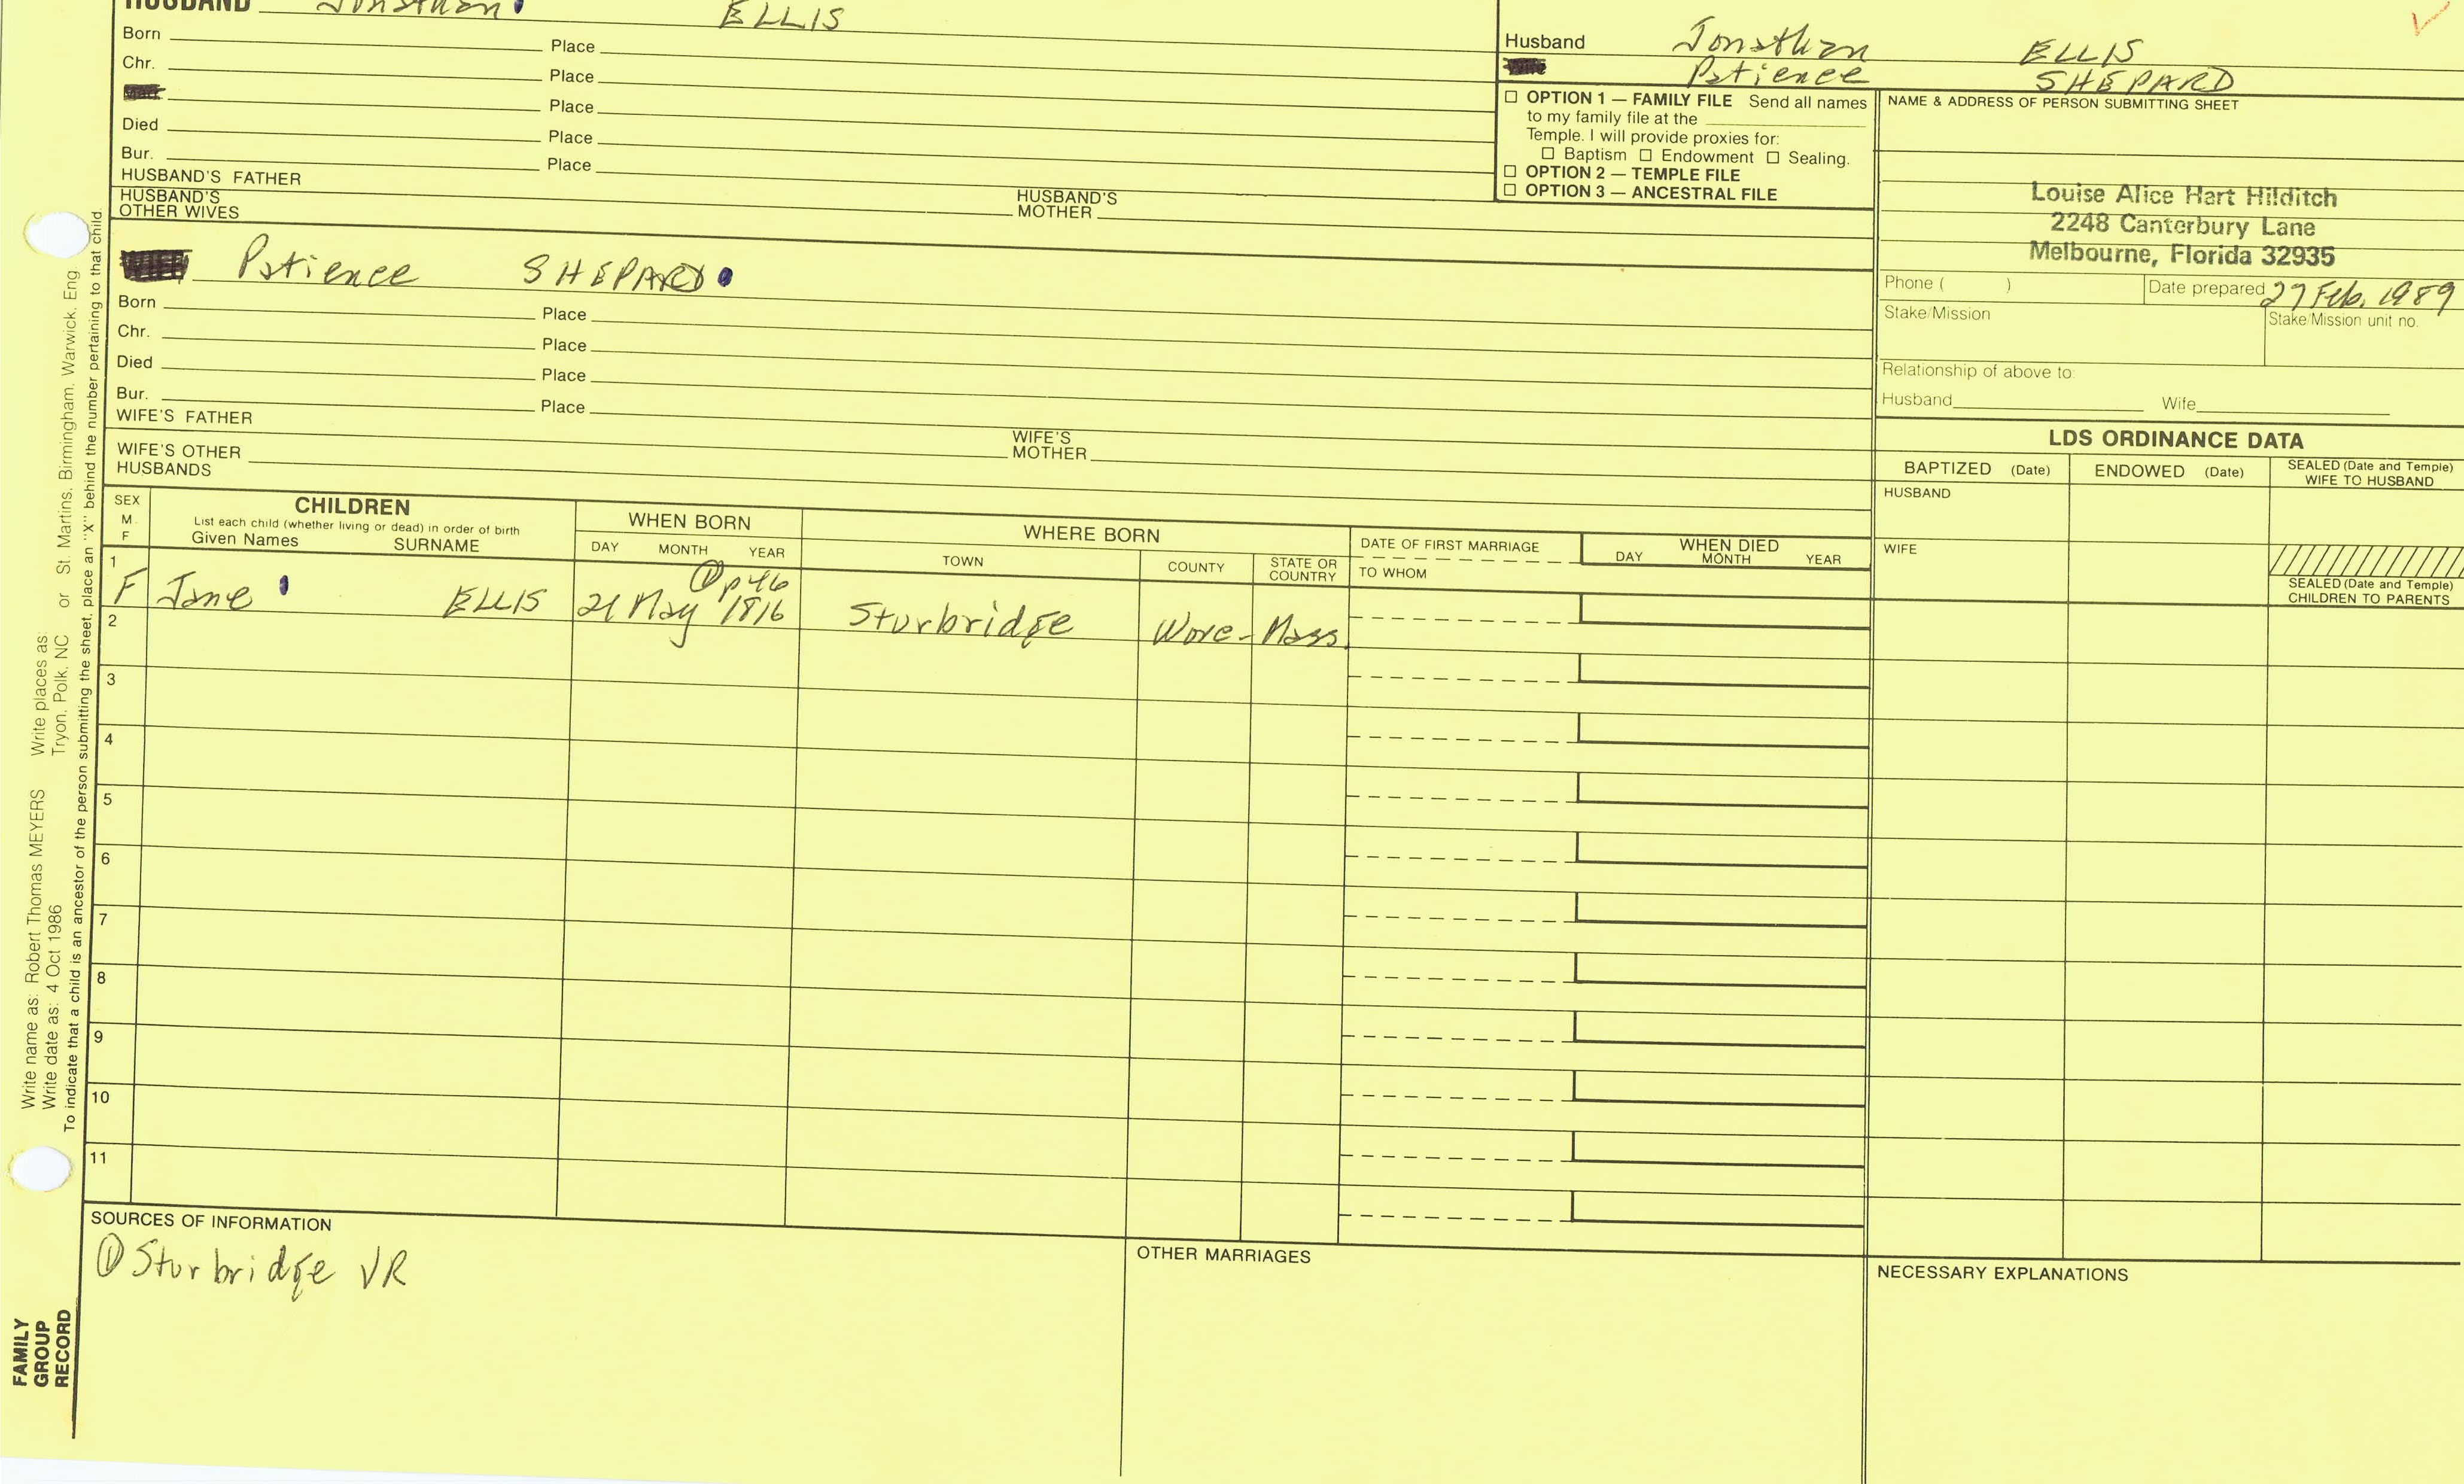 HUSBAND Jonathan ELLIS
Born Place
Chr. Place
Place
Died Place
Bur. Place
HUSBAND'S FATHER
HUSBAND'S MOTHER
HUSBAND'S OTHER WIVES
Husband Jonathan ELLIS
Patience SHEPARD
☐ OPTION 1 — FAMILY FILE Send all names
to my family file at the
Temple. I will provide proxies for:
☐ Baptism ☐ Endowment ☐ Sealing.
☐ OPTION 2 — TEMPLE FILE
☐ OPTION 3 — ANCESTRAL FILE
NAME & ADDRESS OF PERSON SUBMITTING SHEET
Louise Alice Hart Hilditch
2248 Canterbury Lane
Melbourne, Florida 32935
Phone ( )
Date prepared 27 Feb. 1989
Stake/Mission
Stake/Mission unit no.
Relationship of above to:
Husband Wife
Patience SHEPARD
Born Place
Chr. Place
Died Place
Bur. Place
WIFE'S FATHER
WIFE'S MOTHER
WIFE'S OTHER HUSBANDS
LDS ORDINANCE DATA
BAPTIZED (Date) ENDOWED (Date) SEALED (Date and Temple) WIFE TO HUSBAND
HUSBAND
WIFE
SEALED (Date and Temple)
CHILDREN TO PARENTS
SEX
M.
F
CHILDREN
List each child (whether living or dead) in order of birth
Given Names SURNAME
WHEN BORN
DAY MONTH YEAR
WHERE BORN
TOWN COUNTY STATE OR COUNTRY
DATE OF FIRST MARRIAGE
TO WHOM
WHEN DIED
DAY MONTH YEAR
1
① p46
F Jane ELLIS 21 May 1816 Sturbridge Worc- Mass.
2
3
4
5
6
7
8
9
10
11
SOURCES OF INFORMATION
① Sturbridge VR
OTHER MARRIAGES
NECESSARY EXPLANATIONS
Write name as: Robert Thomas MEYERS Write places as
Write date as: 4 Oct 1986 Tryon, Polk, NC or St. Martins, Birmingham, Warwick, Eng
To indicate that a child is an ancestor of the person submitting the sheet, place an "X" behind the number pertaining to that child.
FAMILY
GROUP
RECORD